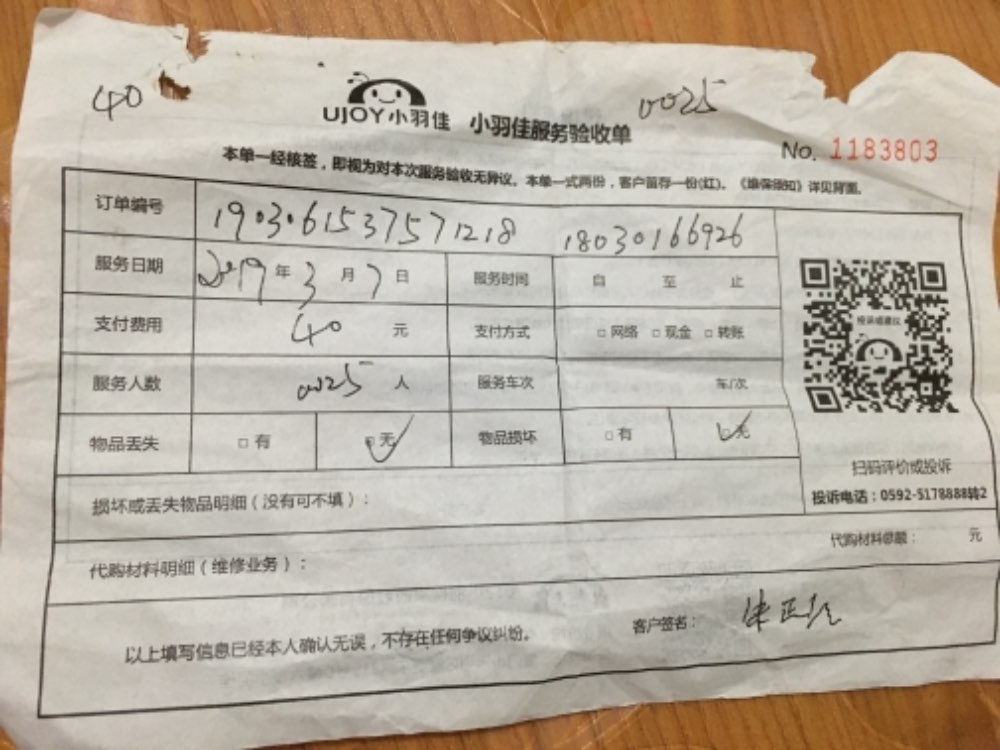 40
0025
UJOY小羽佳 小羽佳服务验收单
No. 1183803
本单一经核签，即视为对本次服务验收无异议。本单一式两份，客户留存一份(红)。《维保须知》详见背面。
订单编号 1903061537571218 18030166926
服务日期 2019年3月7日 服务时间 自 至 止
支付费用 40 元 支付方式 □网络 □现金 □转账
投诉或建议
服务人数 0025 人 服务车次 车/次
物品丢失 □有 □无 √ 物品损坏 □有 □无 √
扫码评价或投诉
投诉电话：0592-5178888转2
损坏或丢失物品明细（没有可不填）：
代购材料总额： 元
代购材料明细（维修业务）：
以上填写信息已经本人确认无误，不存在任何争议纠纷。 客户签名：